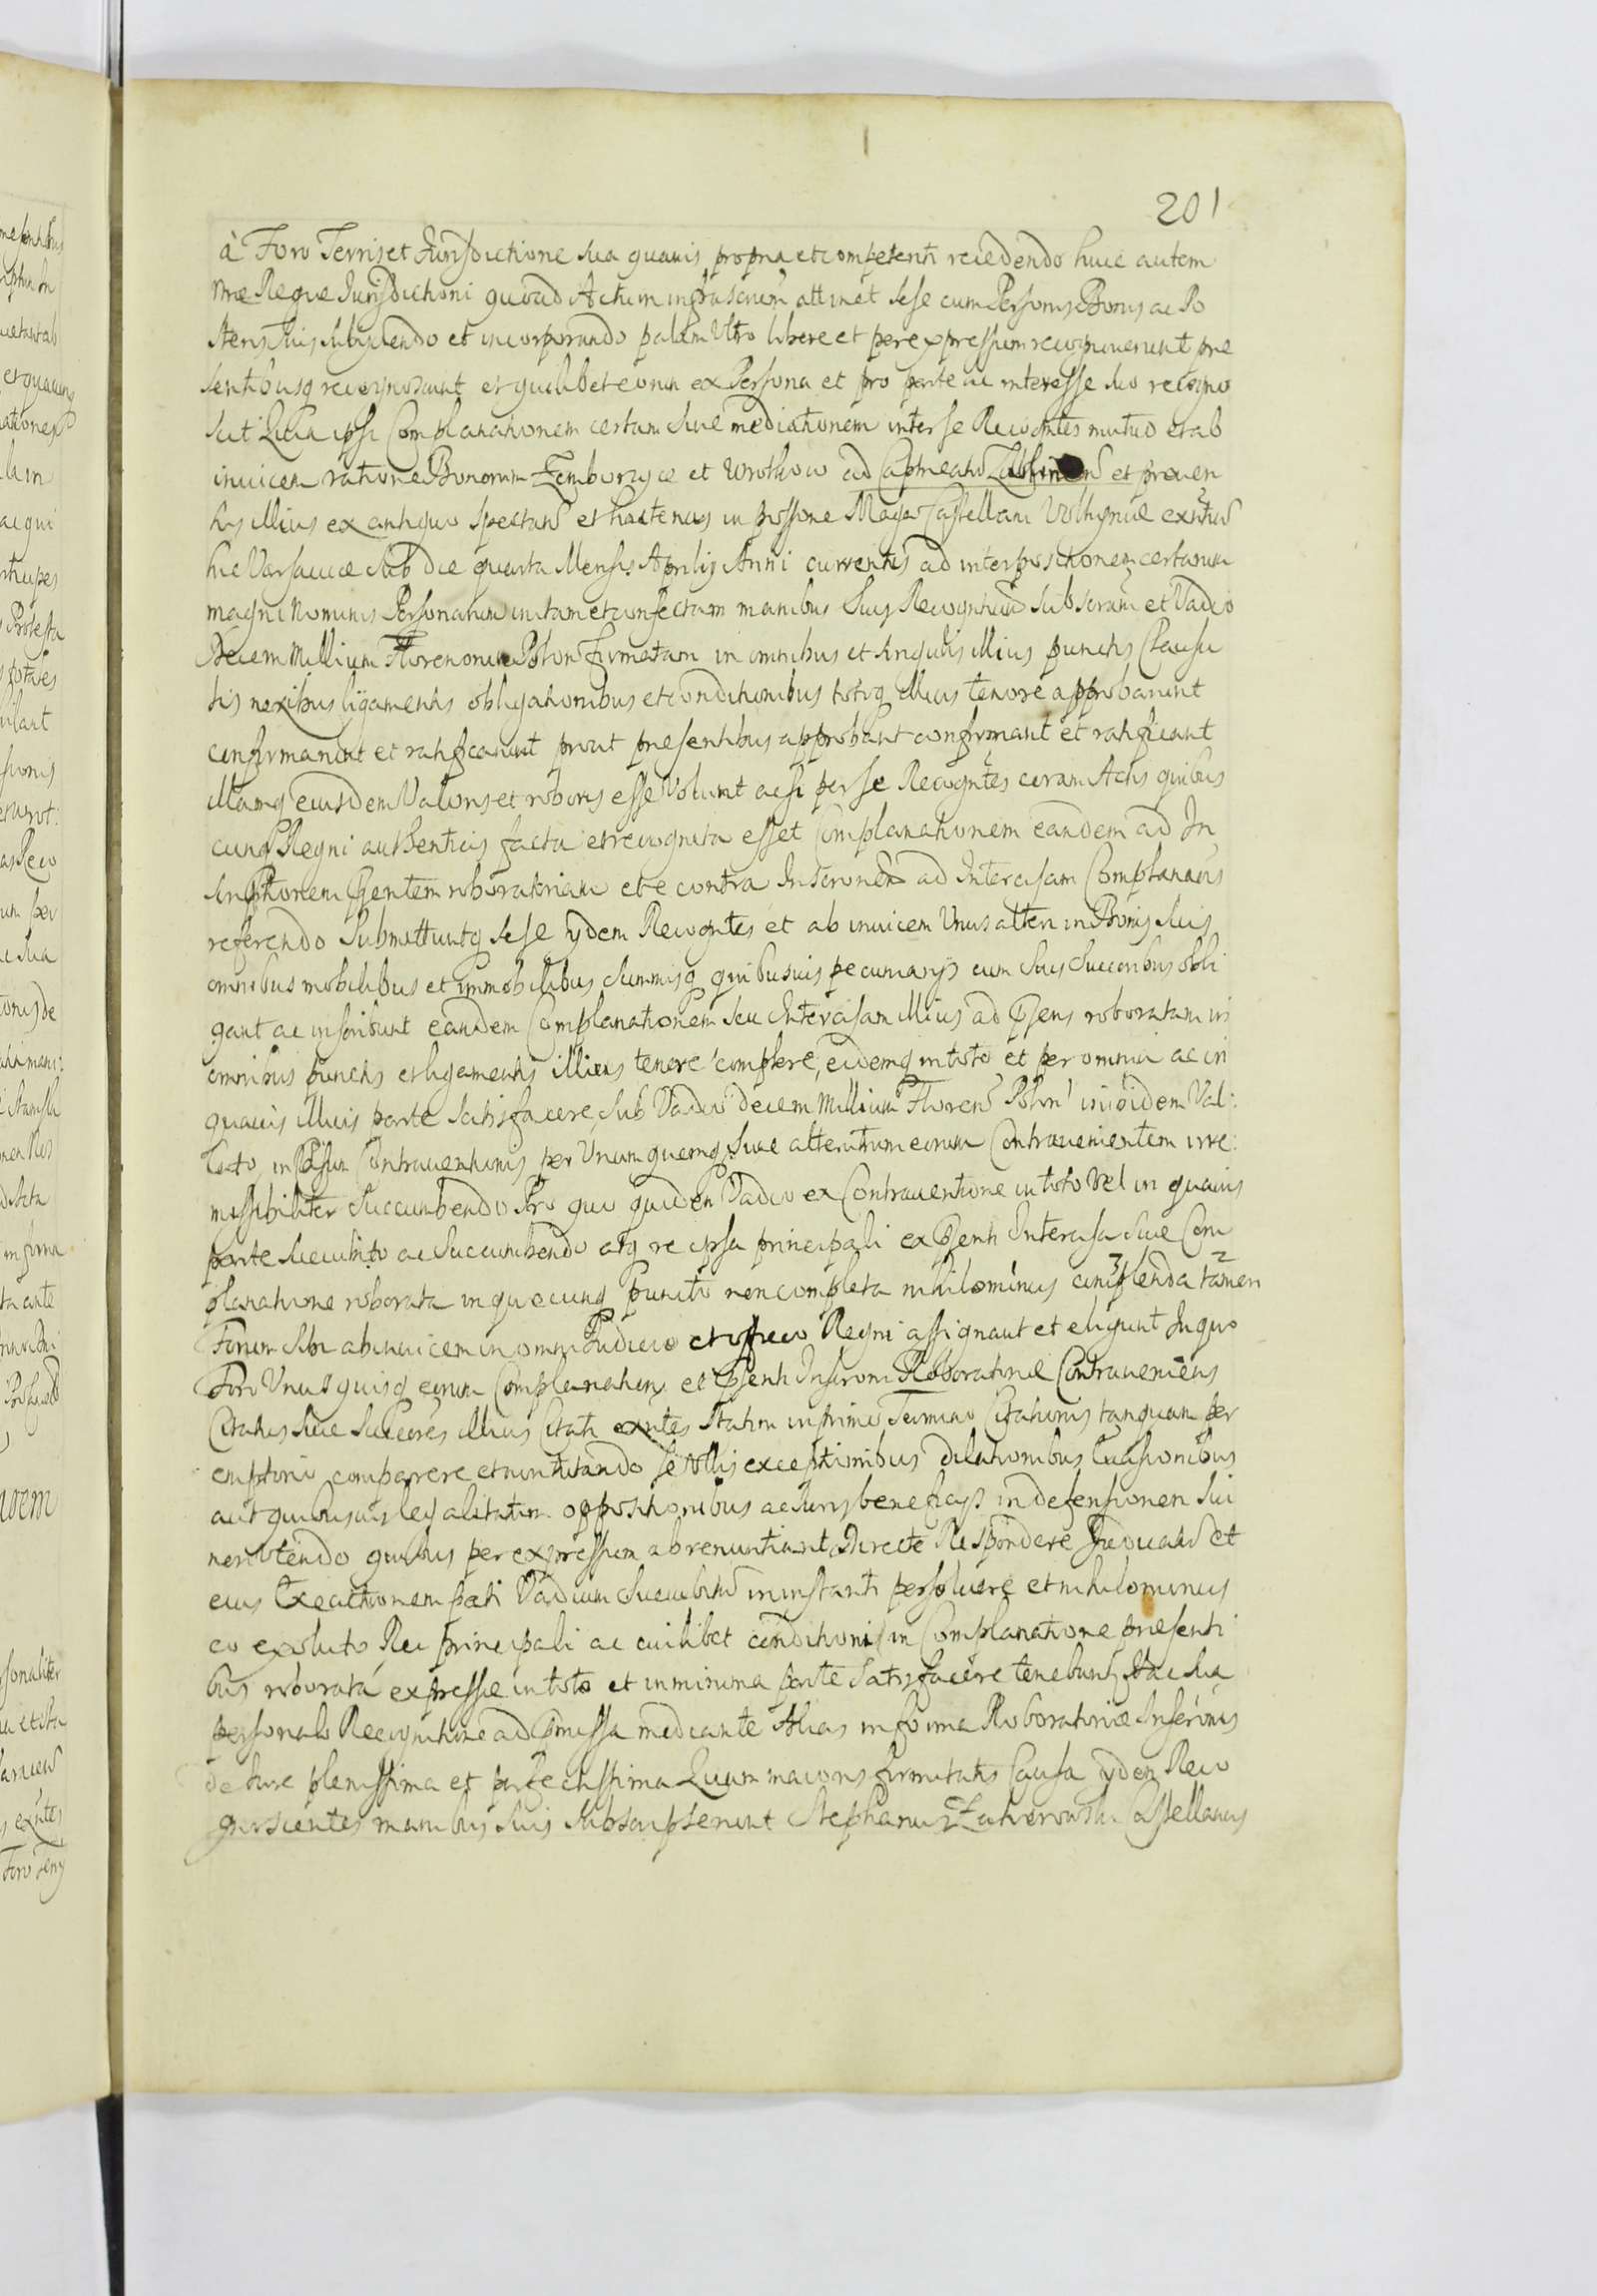 201
à Foro Terris et Jurisdictione sua quauis propria et competenti recedendo huic autem
nræ Regiæ Jurisdictioni quoad Actum infrascrm attinet sese cum Personis Bonis ac Po
steris suis subijciendo et incorporando palam Vltro libere et per expressum recognouerunt præ
sentibusq recognoscunt et quilibet eorum ex Persona et pro parte ac interesse suo recogno
scit Quia ipsi Complanationem certam siue mediationem inter se Recogntes mutuo et ab
inuicem ratione Bonorum Zemborzyce et Wrotkow ad Capneatū Lublinen et prouen
tus illius ex antiquo spectan et hactenus in possone Magci Castellani Volhyniæ exntiu
hic Varsauiæ sub die quarta Mensis Aprilis Anni currentis ad interpositionem certarum
magni Nominis Personarum initam et confectam manibus suis Recogntium subscram et Vadio
Decem Millium Florenorum Polon firmatam in omnibus et singulis illius punctis Clausu
lis nexibus ligamentis obligationibus et conditionibus totoq illius tenore approbarunt
confirmarunt et ratificarunt prout presentibus approbant confirmant et ratificant
illamq eiusdem Valoris et roboris esse Volunt acsi per se Recogntes coram Actis quibus
cunq Regni authenticis facta et recognita esset Complanationem eandem ad In
scriptionem Pntem roboratoriam et e contra Inscronem ad Intercisam Complanaōis
referendo Submittuntq sese ijdem Recogntes et ab inuicem Vnus alteri in Bonis suis
omnibus mobilibus et immobilibus summisq quibusuis pecuniarijs cum suis Succoribus obli
gant ac inscribunt eandem Complanationem seu Intercisam illius ad Pñs roboratam in
omnibus punctis et ligamentis illius tenere complere, eidemq in toto et per omnia ac in
quauis illius parte satisfacere, sub Vadio decem Millium Floren Polon inibidem Val:
lato, in casum Contrauentionis per Vnum quemq siue alterutrum eorum Contrauenientem irre:
missibiliter succumbendo Pro quo quidem Vadio ex Contrauentione in toto vel in quauis
parte succubito ac succumbendo atq re ipsa principali ex Pñti Intercisa siue Com
planatione roborata in quocunq puncto non completa nihilominus complenda tamen
Forum sibi ab inuicem in omni Judicio et officio Regni assignant et eligunt In quo
Foro Vnusquisq eorum Complanationi et Pñti Inscroni Roboratoriæ Contraueniens
Citatus siue Succores illius Citati exntes statim in primo Termino Citationis tanquam per
emptorio comparere et non iuuando se Vllis exceptionibus dilationibus Euasionibus
aut quibusuis legalitatum oppositionibus ac Juris beneficijs in defensionem sui
non Vtendo quibus per expressum abrenuntiant Directe Respondere Judicatu et
eius Executionem pati Vadium succubitu in instanti persoluere et nihilominus
eo exoluto Rei principali ac cuilibet conditioni in Complanatione presenti
bus roborata expressæ in toto et in minima parte satisfacere tenebuntur Hac sua
personali Recognitione ad Præmissa mediante Alias in forma Roboratoriæ Inscronis
de Jure plenissima et perfectissima Quam maioris firmitatis Causa ijdem Reco
gnoscientes manibus suis subscripserunt Stephanus Zahorowski Castellanus